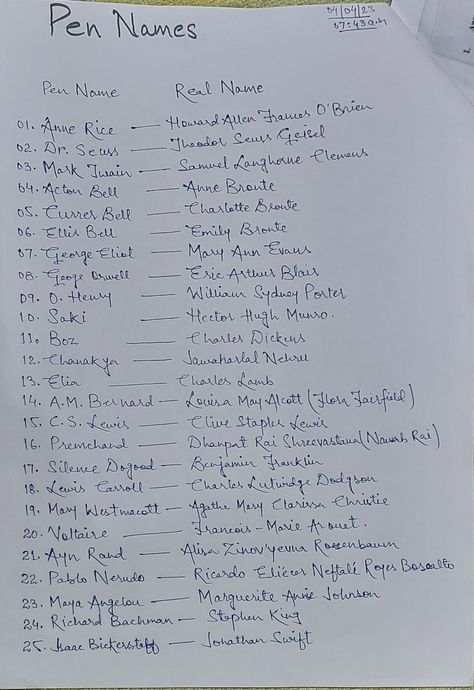 Pen Names
04/04/23
07:43 a.m
Pen Name Real Name
01. Anne Rice — Howard Allen Frances O'Brien
02. Dr. Seuss — Theodor Seuss Geisel
03. Mark Twain — Samuel Langhorne Clemens
04. Acton Bell — Anne Bronte
05. Currer Bell — Charlotte Bronte
06. Ellis Bell — Emily Bronte
07. George Eliot — Mary Ann Evans
08. Geoge Orwell — Eric Arthur Blair
09. O. Henry — William Sydney Porter
10. Saki — Hector Hugh Munro.
11. Boz — Charles Dickens
12. Chanakya — Jawaharlal Nehru
13. Elia — Charles Lamb
14. A.M. Bernard — Louisa May Alcott (Flora Fairfield)
15. C.S. Lewis — Clive Staples Lewis
16. Premchand — Dhanpat Rai Shreevastava (Nawab Rai)
17. Silence Dogood — Benjamin Franklin
18. Lewis Carroll — Charles Lutwidge Dodgson
19. Mary Westmacott — Agatha Mary Clarissa Christie
20. Voltaire — Francois-Marie Arouet.
21. Ayn Rand — Alisa Zinov'yevna Rosenbaum
22. Pablo Nerudo — Ricardo Eliécer Neftalé Reyes Basoalto
23. Maya Angelou — Marguerite Annie Johnson
24. Richard Bachman — Stephen King
25. Isaac Bickerstaff — Jonathan Swift